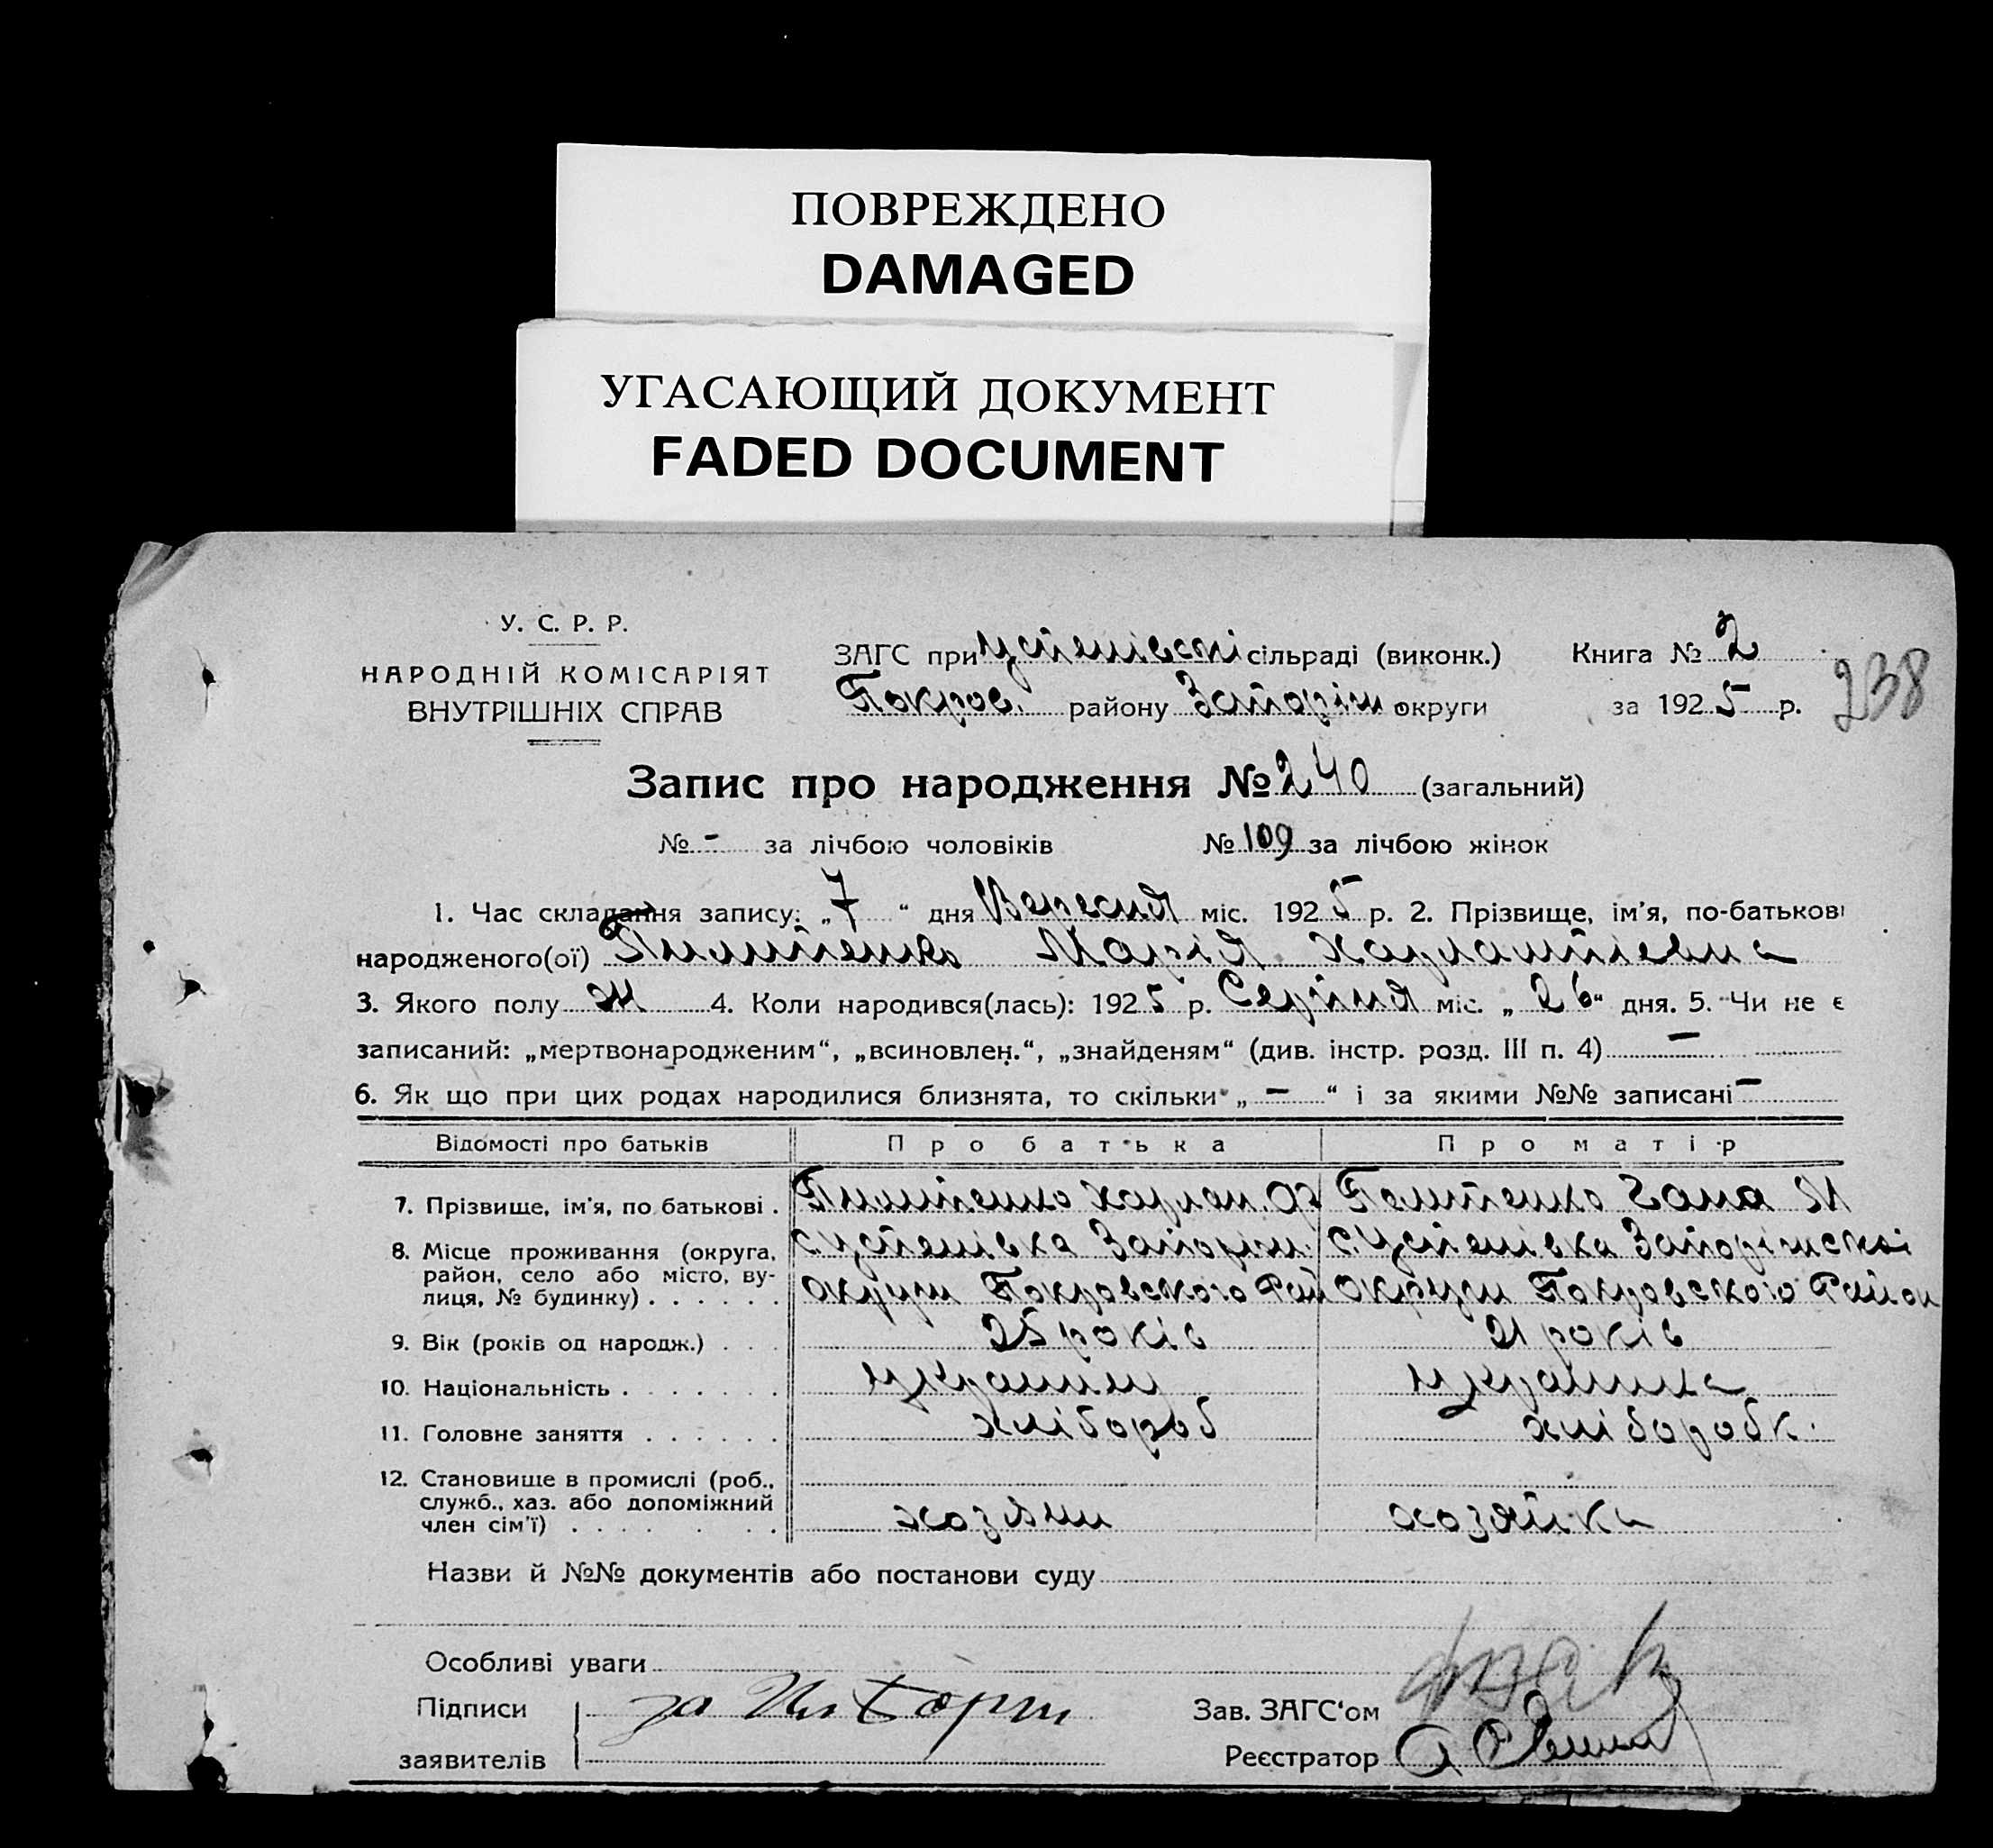 ПОВРЕЖДЕНО
DAMAGED
УГАСАЮЩИЙ ДОКУМЕНТ
FADED DOCUMENT
У. С. Р. Р.
НАРОДНІЙ КОМІСАРІЯТ
ВНУТРІШНІХ СПРАВ
ЗАГС при Успенівскі сільраді (виконк.) Книга № 2
Покров. району Запоріж округи за 1925 р. 238
Запис про народження № 240 (загальний)
№ - за лічбою чоловіків № 109 за лічбою жінок
1. Час складання запису: „7“ дня Вересня міс. 1925 р. 2. Прізвище, ім’я, по-батькові
народженого(ої) Пилипенко Марія Харлампіевна
3. Якого полу ж 4. Коли народився(лась): 1925 р. Серпня міс. „26“ дня. 5. Чи не є
записаний: „мертвонародженим“, „всиновлен.“, „знайденям“ (див. інстр. розд. III п. 4) —
6. Як що при цих родах народилися близнята, то скільки „ — “ і за якими №№ записані —
Відомості про батьків Про батька Про матір
7. Прізвище, ім’я, по батькові . Пилипенко Харлам. Пелипенко Гана М
8. Місце проживання (округа, с. Успенівка Запоріж. с. Успенівка Запоріжскоі
район, село або місто, ву-
лиця, № будинку) . . . . . . округи Покровского Рай округи Покровского Район
9. Вік (років од народж.) . . . 25 років 21 років
10. Національність . . . . . . . українец українка
11. Головне заняття . . . . . . хлібороб хліборобк.
12. Становище в промислі (роб.,
служб., хаз. або допоміжний
член сім’ї) . . . . . . . хозяин хозяйка
Назви й №№ документів або постанови суду
Особливі уваги
Підписи за Зав. ЗАГС‘ом
заявителів Реєстратор